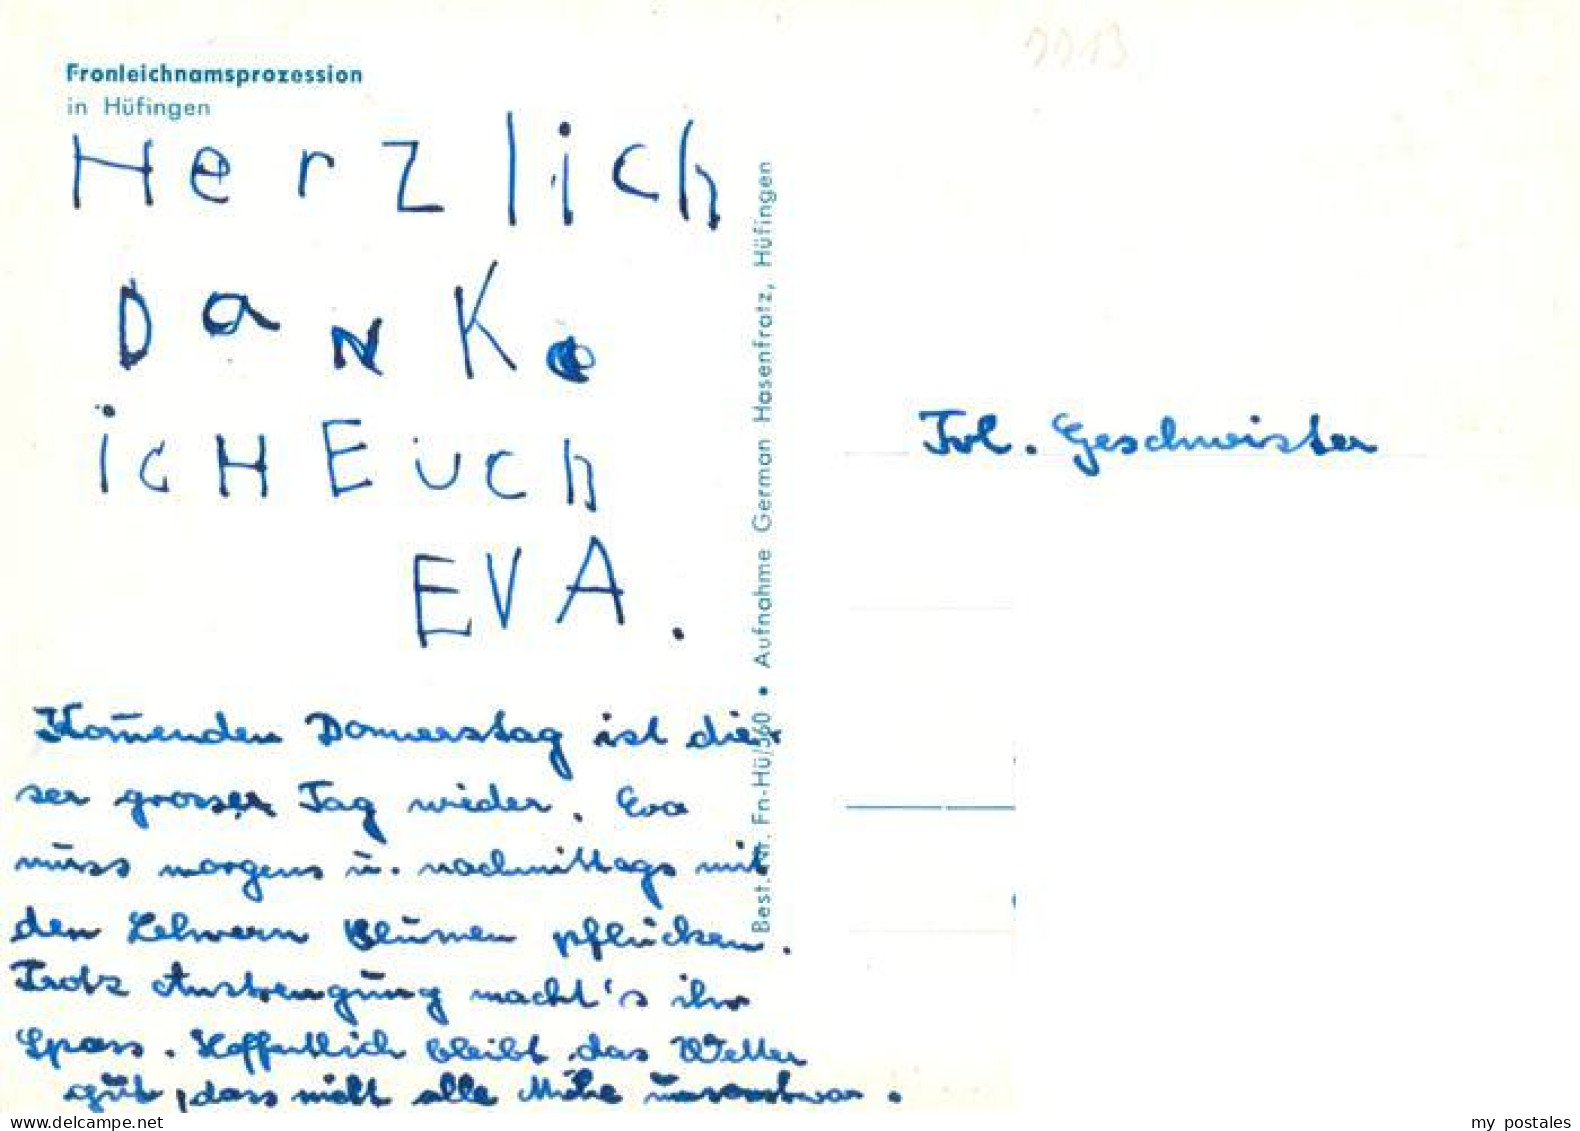 1113
Fronleichnamsprozession
in Hüfingen
Herzlich
Danke
icH Euch
EVA.
Best. Nr. Fn-Hü/360 • Aufnahme German Hasenfratz, Hüfingen
Kom̄enden Donnerstag ist die-
ser grosser Tag wieder. Eva
muss morgens u. nachmittags mit
den Lehrern Blumen pflücken.
Trotz Anstrengung macht's ihr
Spass. Hoffentlich bleibt das Wetter
gut, dass nicht alle Mühe umsonst war.
Frl. Geschwister
www.delcampe.net
my postales